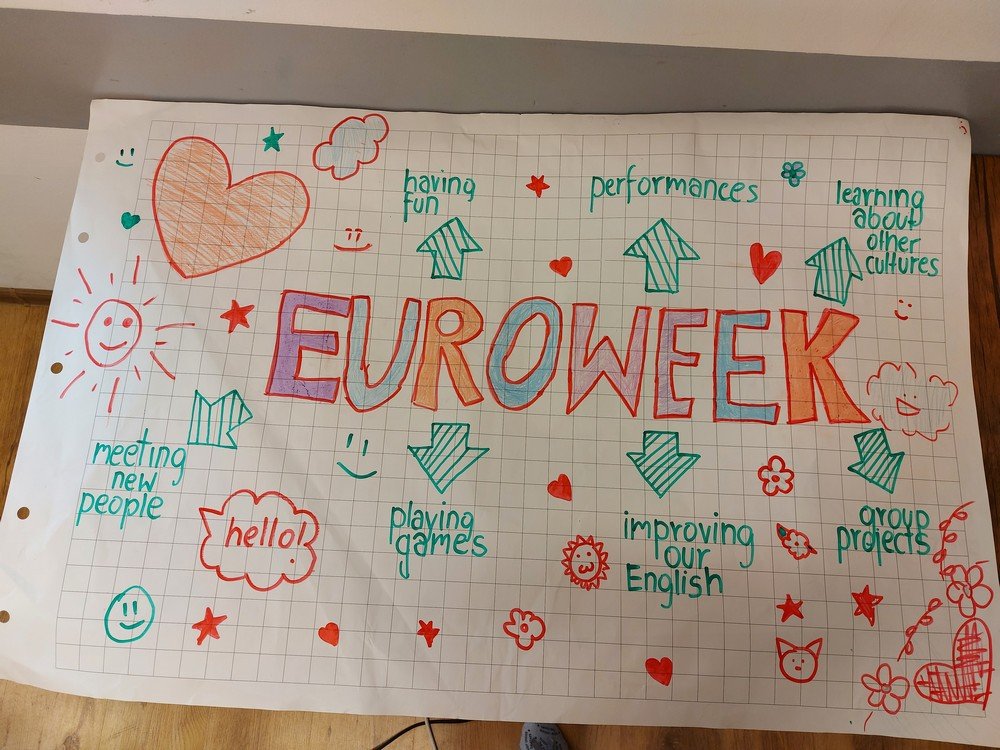 having
fun
performances
learning
about
other
cultures
EUROWEEK
meeting
new
people
hello!
playing
games
improving
our
English
group
projects